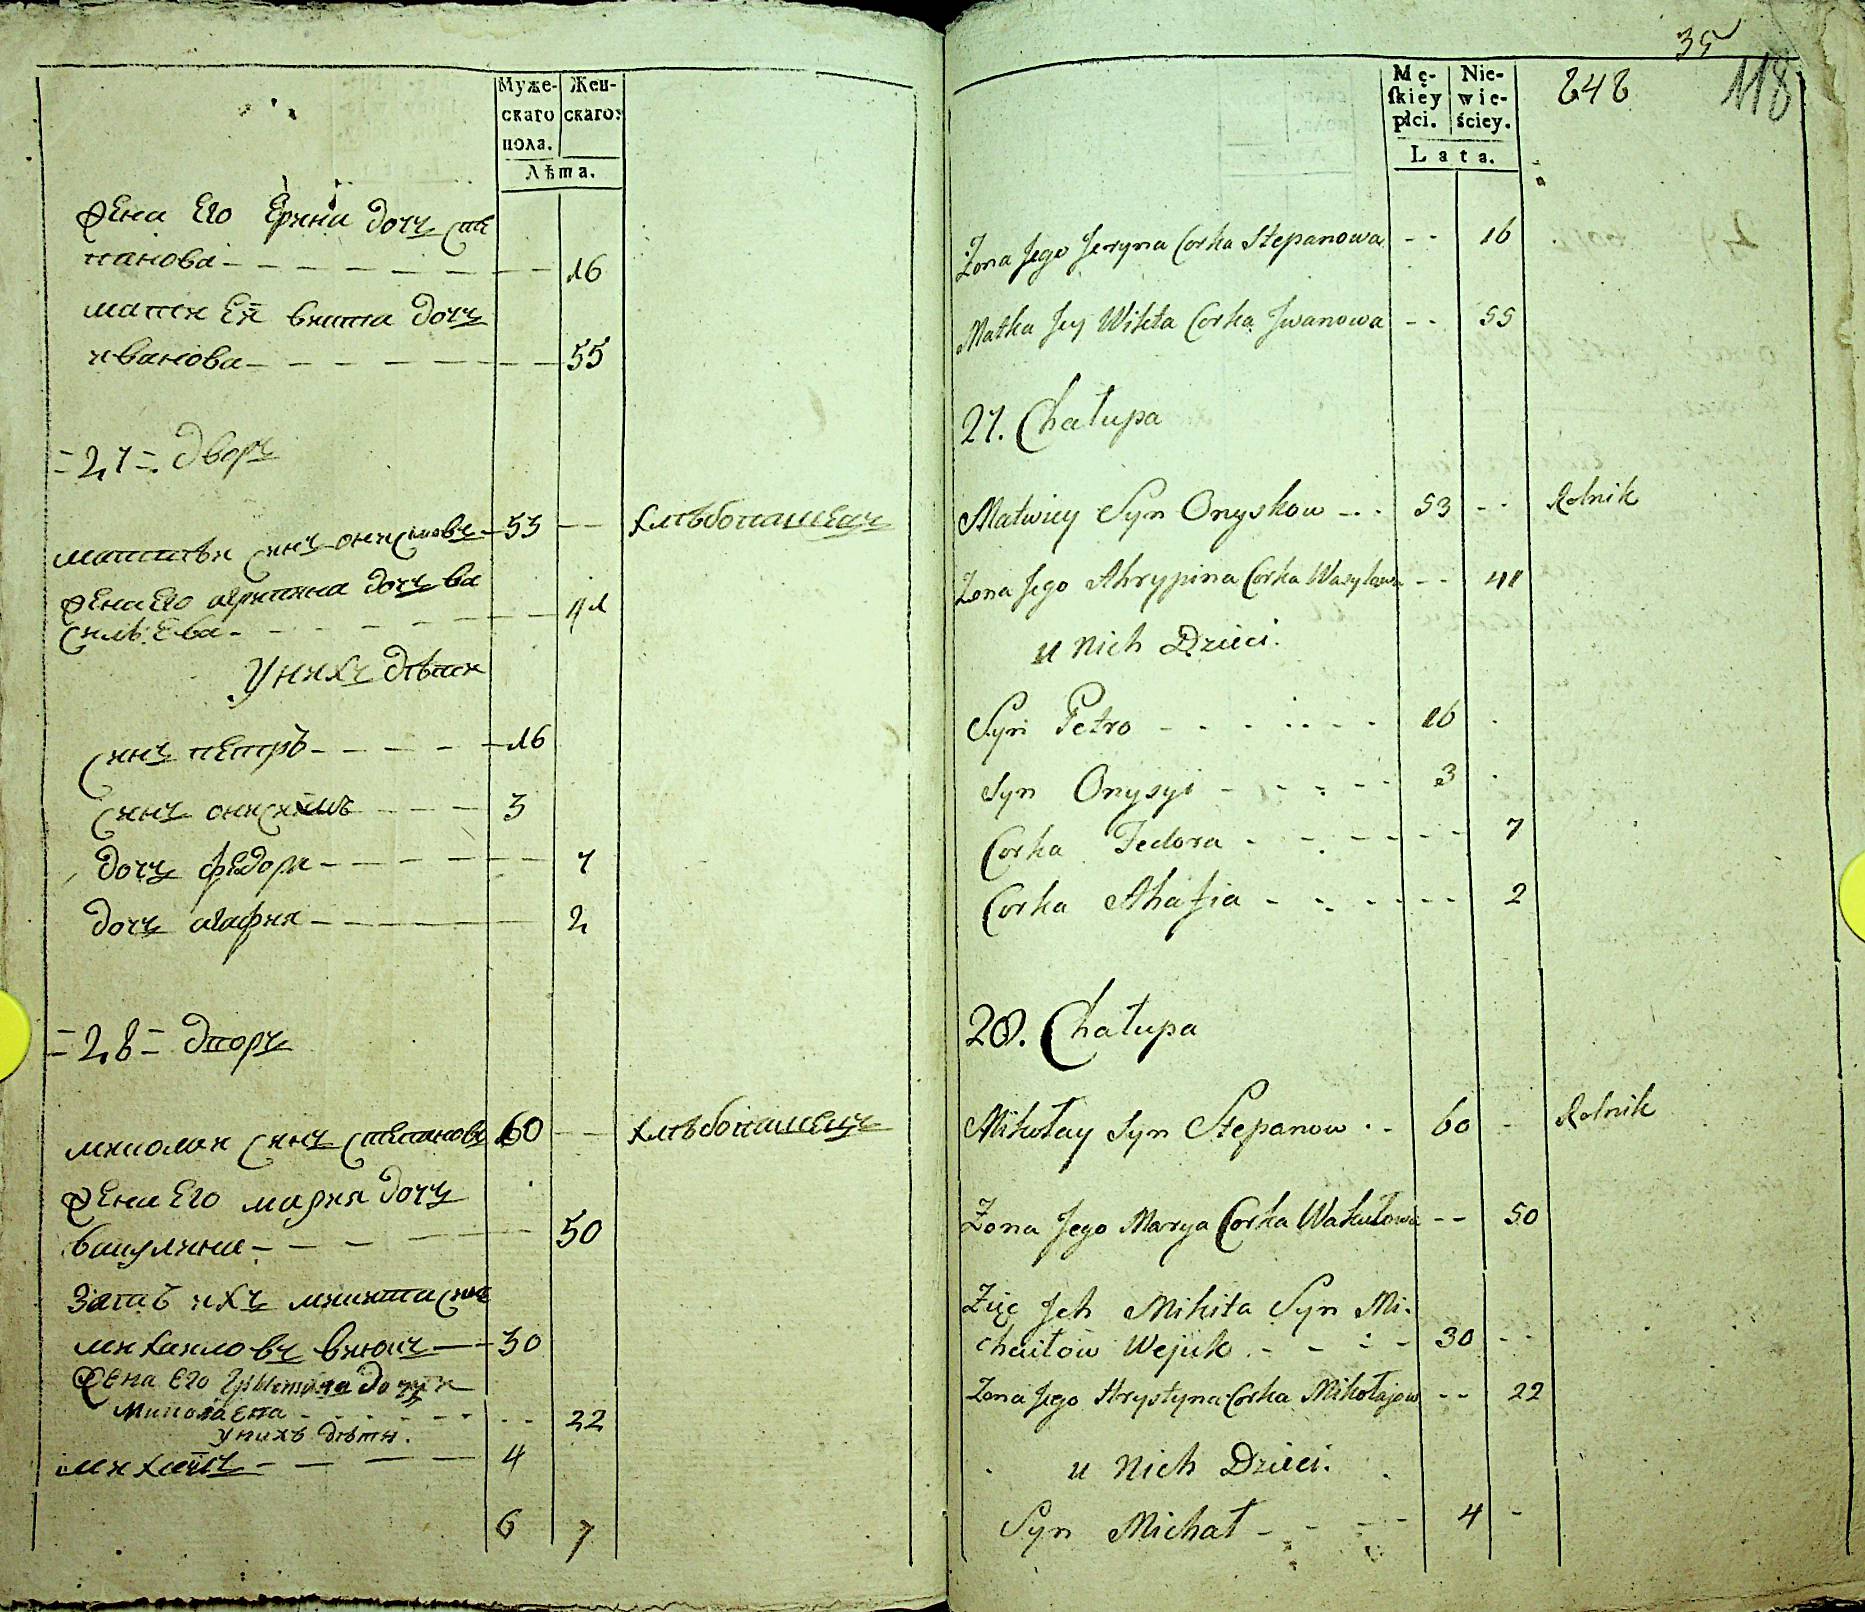 Муже-
скаго
пола.
Жен-
скаго:
Лѣта.
Жена Его Ерина дочъ сте
панова - - - 16
матси Ей викта дочъ
иванова - - - 55
= 27 = Дворъ
матвѣи синъ онисковъ - 53 - - хлѣбопашецъ
жена Его агрипина дочъ ва
силѣева - - - 41
У нихъ дѣти
синъ петръ - - - 16
синъ онисимъ - - - 3
дочъ федора - - - 7
дочъ агафия - - - 2
= 28 = дворъ
николаи синъ степановъ 60 - - хлѣбопашецъ
жена Его мария дочъ
вакулина - - - 50
зать ихъ микита синъ
михаиловъ - 30
Жена Его Христина дочъ
Николаева - - - 22
у нихъ дѣти.
михаилъ - - - 4
6 7
35
118
242
Mę-
skiey
płci.
Nie-
wie-
ściey.
Lata.
Żona Jego Jeryna Corka Stepanowa - - 16
Matka Jey Wikta Corka Jwanowa - - 55
27. Chałupa
Matwiey Syn Onyskow - - 53 - - Rolnik
Żona Jego Ahrypina Corka Wasylowa - - 41
u nich Dzieci.
Syn Petro - - - 16 -
Syn Onysyi - - - 3 -
Corka Fedora - - - 7
Corka Ahafia - - - 2
28. Chałupa
Mikołay Syn Stepanow - - 60 - Rolnik
Żona Jego Marya Corka Wakułowa - - 50
Zięć Jch Mikita Syn Mi-
chaiłow Wejuk - - - 30 - -
Żona Jego Hrystyna Corka Mikołajow - - 22
u nich Dzieci.
Syn Michał - - - 4 -